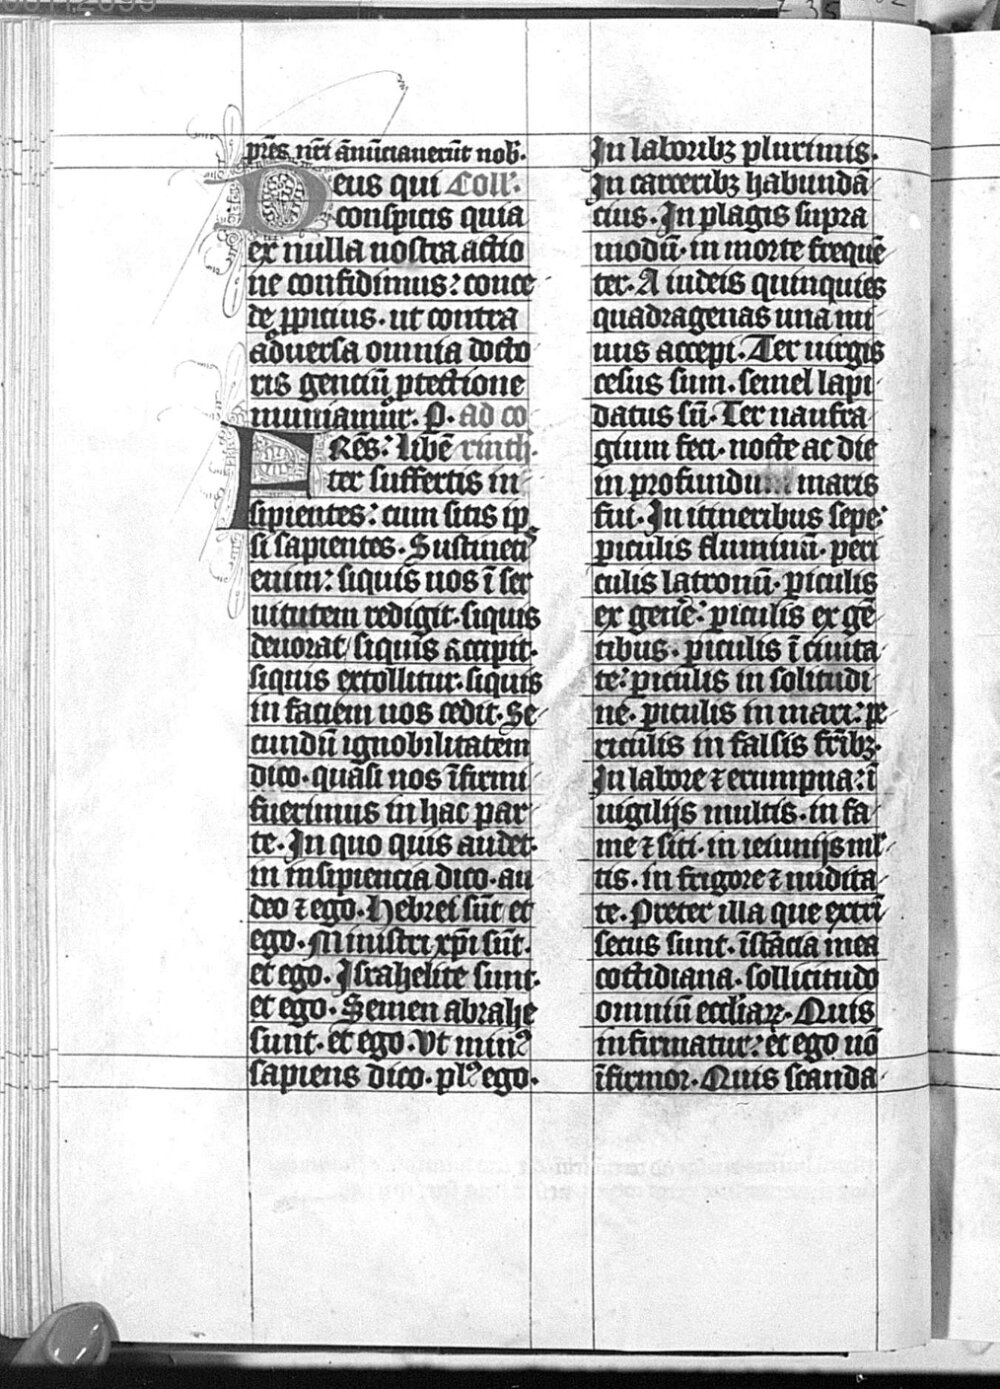 pr̄es nr̄i ān̄uciauer̄ut nob̄.
Deus qui Coll'.
conspicis quia
ex nulla nostra actio
ne confidimus: conce
de ꝓpicius. ut contra
aduersa omnia docto
ris genciū ꝓtectione
muniamur. P. ad co
FRēs: Libē rinth'.
ter suffertis in
sipientes: cum sitis ip
si sapientes. Sustinetis
enim: siquis uos ī ser
uitutem redigit. siquis
deuorat/ siquis accipit.
siquis extollitur. siquis
in faciem uos cedit. Se
cundū ignobilitatem
dico. quasi nos īfirmi
fuerimus in hac par
te. In quo quis audet.
in insipiencia dico. au
deo ⁊ ego. Hebrei sūt et
ego. Ministri xp̄i sūt.
et ego. Israhelite sunt.
et ego. Semen abrahe
sunt. et ego. Ut minꝰ
sapiens dico. plꝰ ego.
In laboribꝫ plurimis.
In carceribꝫ habundā
cius. In plagis supra
modū. in morte frequē
ter. A iudeis quinquies
quadragenas una mi
nus accepi. Ter uirgis
cesus sum. semel lapi
datus sū. Ter naufra
gium feci. nocte ac die
in profundum maris
fui. In itineribus sepe:
ꝑiculis fluminū. peri
culis latronū. ꝑiculis
ex gen̄e: ꝑiculis ex gē
tibus. ꝑiculis ī ciuita
te: ꝑiculis in solitudi
ne. ꝑiculis in mari: pe
riculis in falsis fr̄ibꝫ.
In labore ⁊ erumpna: ī
uigilijs multis. in fa
me ⁊ siti. in ieiunijs ml
tis. in frigore ⁊ nudita
te. Preter illa que extrī
secus sunt. īstācia mea
cottidiana. sollicitudo
omniū eccl'iaꝝ. Quis
infirmatur: et ego nō
īfirmor. Quis scanda